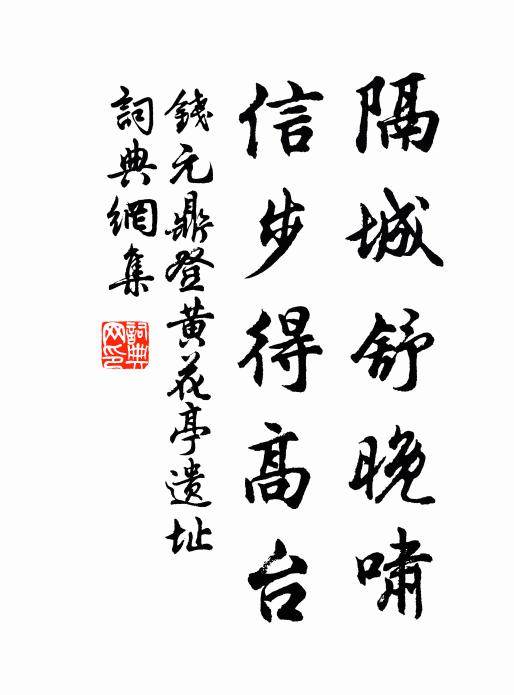 隔城舒晚啸
信步得高台
錢元鼎登黄花亭遗址
詞典網集
詞典网印